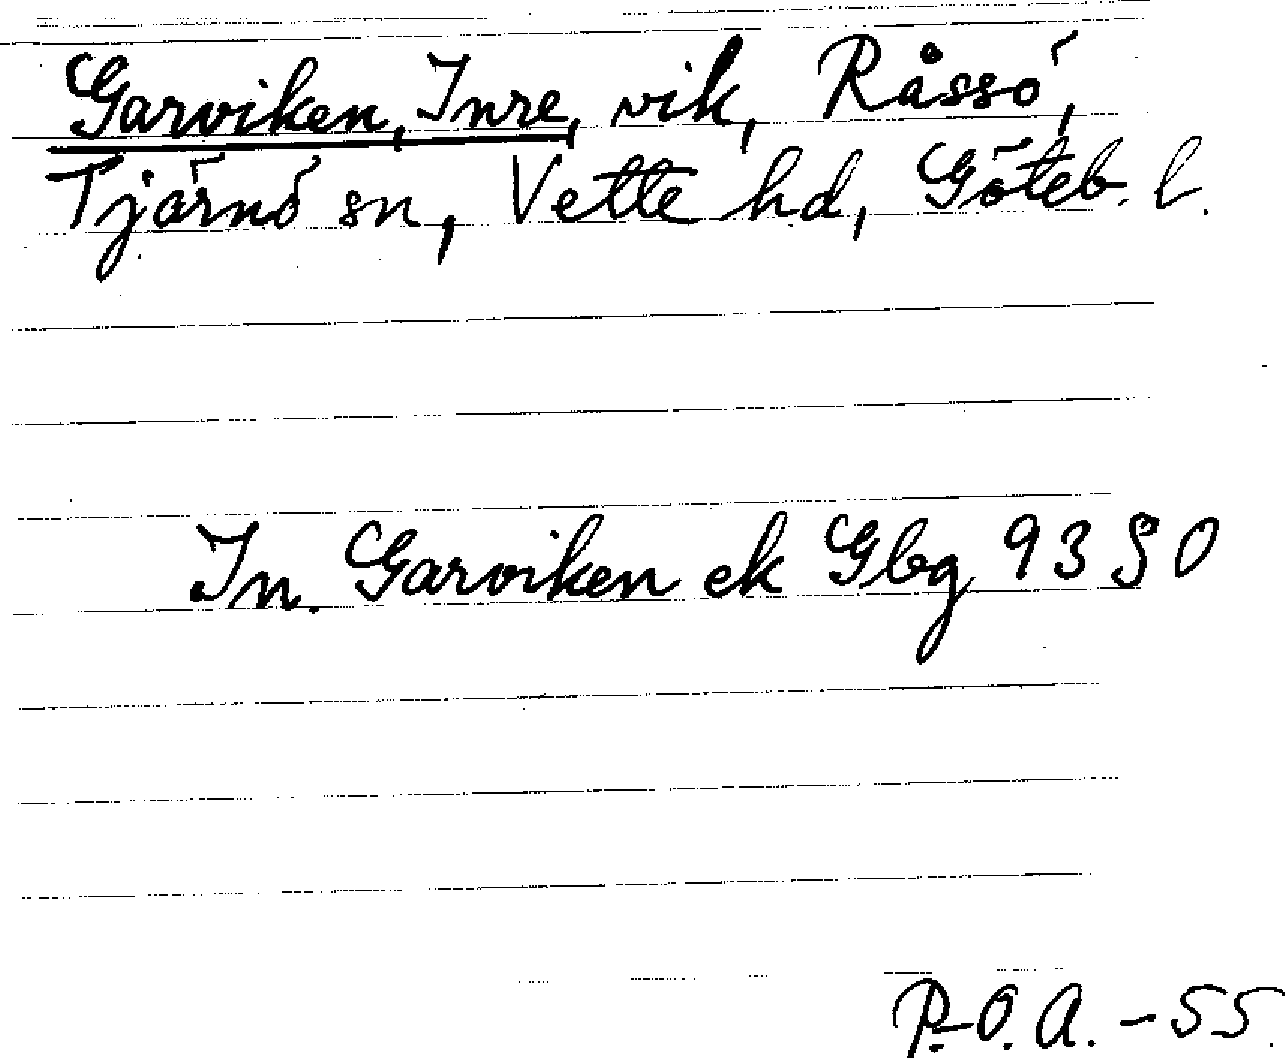 Garviken, Inre, vik, Råssö,
Tjärnö sn, Vette hd, Göteb. l.
In. Garviken ek Gbg 9380
P.-O. A. - 55.